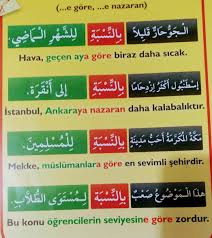 (...e göre, ...e nazaran)
الْجَوُّ حَارٌّ قَلِيلًا بِالنِّسْبَةِ لِلشَّهْرِ الْمَاضِي.
Hava, geçen aya göre biraz daha sıcak.
إِسْطَنْبُولُ أَكْثَرُ ازْدِحَامًا بِالنِّسْبَةِ إِلَى أَنْقَرَةَ.
İstanbul, Ankaraya nazaran daha kalabalıktır.
مَكَّةُ الْمُكَرَّمَةُ أَحَبُّ مَدِينَةٍ بِالنِّسْبَةِ لِلْمُسْلِمِينَ.
Mekke, müslümanlara göre en sevimli şehirdir.
هَذَا الْمَوْضُوعُ صَعْبٌ بِالنِّسْبَةِ لِمُسْتَوَى الطُّلَّابِ.
Bu konu öğrencilerin seviyesine göre zordur.